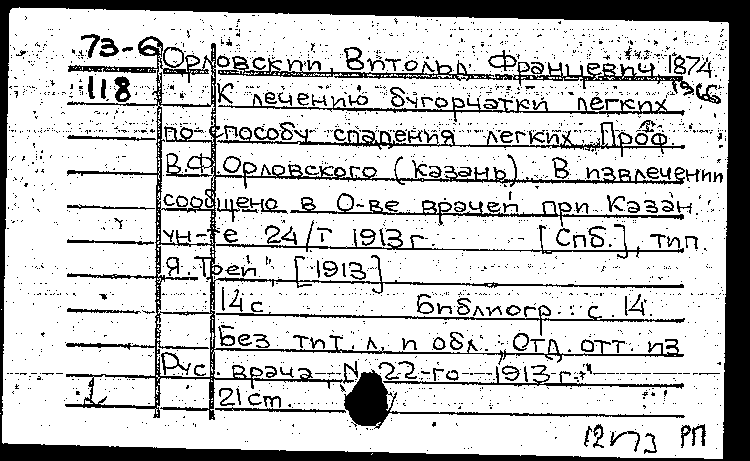 73-6 Орловский, Витольд Францевич 1874
118 К лечению бугорчатки легких 1966
по способу спадения легких. Проф.
В.Ф. Орловского (Казань). В извлечении
сообщено в О-ве врачей при Казан.
ун-те 24/I 1913 г. [Спб.], тип.
"Я. Трей", [1913]
14 с. Библиогр.: с. 14.
Без тит. л. и обл. „Отд. отт. из
Рус. врача, № 22-го 1913 г."
21 cm.
РП